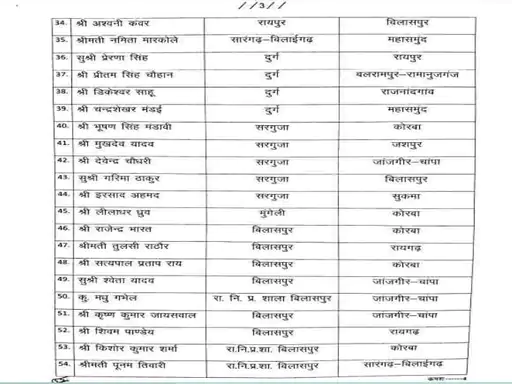 //3//
34. श्री अश्वनी कंवर रायपुर बिलासपुर
35. श्रीमती नमिता मारकोले सारंगढ़–बिलाईगढ़ महासमुंद
36. सुश्री प्रेरणा सिंह दुर्ग रायपुर
37. श्री प्रीतम सिंह चौहान दुर्ग बलरामपुर–रामानुजगंज
38. श्री डिकेश्वर साहू दुर्ग राजनांदगांव
39. श्री चन्द्रशेखर मंडई दुर्ग महासमुंद
40. श्री भूषण सिंह मंडावी सरगुजा कोरबा
41. श्री मुखदेव यादव सरगुजा जशपुर
42. श्री देवेन्द्र चौधरी सरगुजा जांजगीर–चांपा
43. सुश्री गरिमा ठाकुर सरगुजा बिलासपुर
44. श्री इरसाद अहमद सरगुजा सुकमा
45. श्री लीलाधर ध्रुव मुंगेली कोरबा
46. श्री राजेन्द्र भारत बिलासपुर कोरबा
47. श्रीमती तुलसी राठौर बिलासपुर रायगढ़
48. श्री सत्यपाल प्रताप राय बिलासपुर कोरबा
49. सुश्री श्वेता यादव बिलासपुर जांजगीर–चांपा
50. कु. मधु गभेल रा. नि. प्र. शाला बिलासपुर जांजगीर–चांपा
51. श्री कृष्ण कुमार जायसवाल बिलासपुर जांजगीर–चांपा
52. श्री शिवम पाण्डेय बिलासपुर रायगढ़
53. श्री किशोर कुमार शर्मा रा.नि.प्र.शा. बिलासपुर कोरबा
54. श्रीमती पूनम तिवारी रा.नि.प्र.शा. बिलासपुर सारंगढ़–बिलाईगढ़